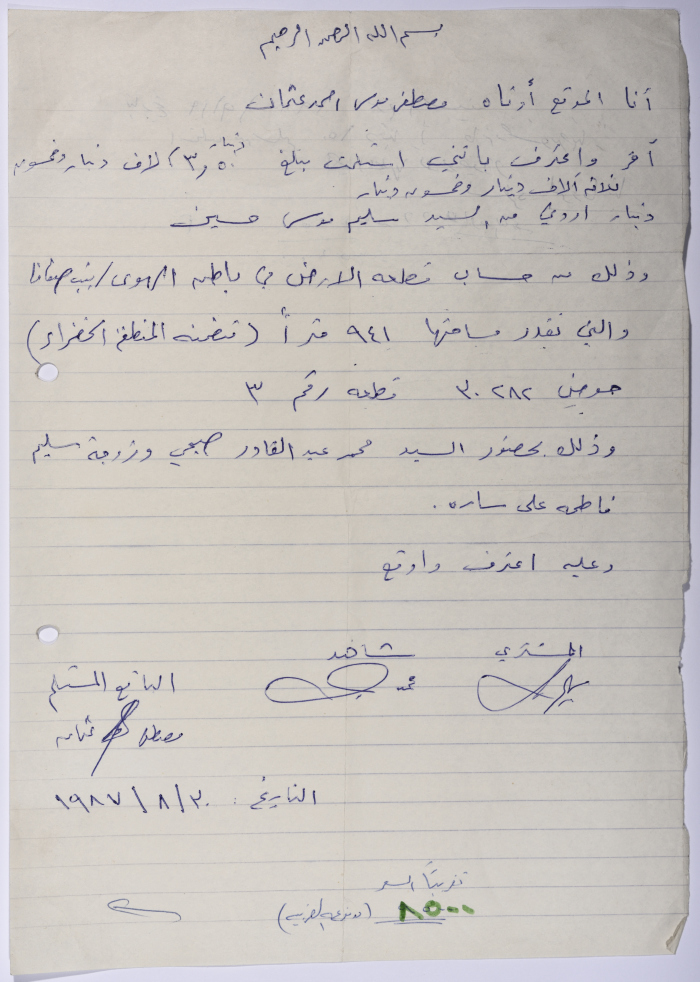 بسم الله الرحمن الرحيم
أنا الموقع أدناه مصطفى موسى احمد عثمان
أقر واعترف بانني استلمت بلغ ٣,٠٥٠ آلاف دينار وخمسون
ثلاثة آلاف دينار وخمسون دينار
دينار اردني من السيد سليم موسى حسين
وذلك من حساب قطعه الارض في باطن الهوى / بيت صفافا
والتي تقدر مساحتها ٩٤١ متراً (متضمنه المنطقة الخضراء)
حوض ٣٠٢٨٢ قطعه رقم ٣
وذلك بحضور السيد محمد عبد القادر صبحي وزوجة سليم
فاطمه علي ساره .
وعليه اعترف واوقع
المشتري شاهد البائع المستلم
محمد مصطفى عثمان
التاريخ : ٣٠ / ٨ / ١٩٨٧
تقريباً السعر
٨٥٠٠